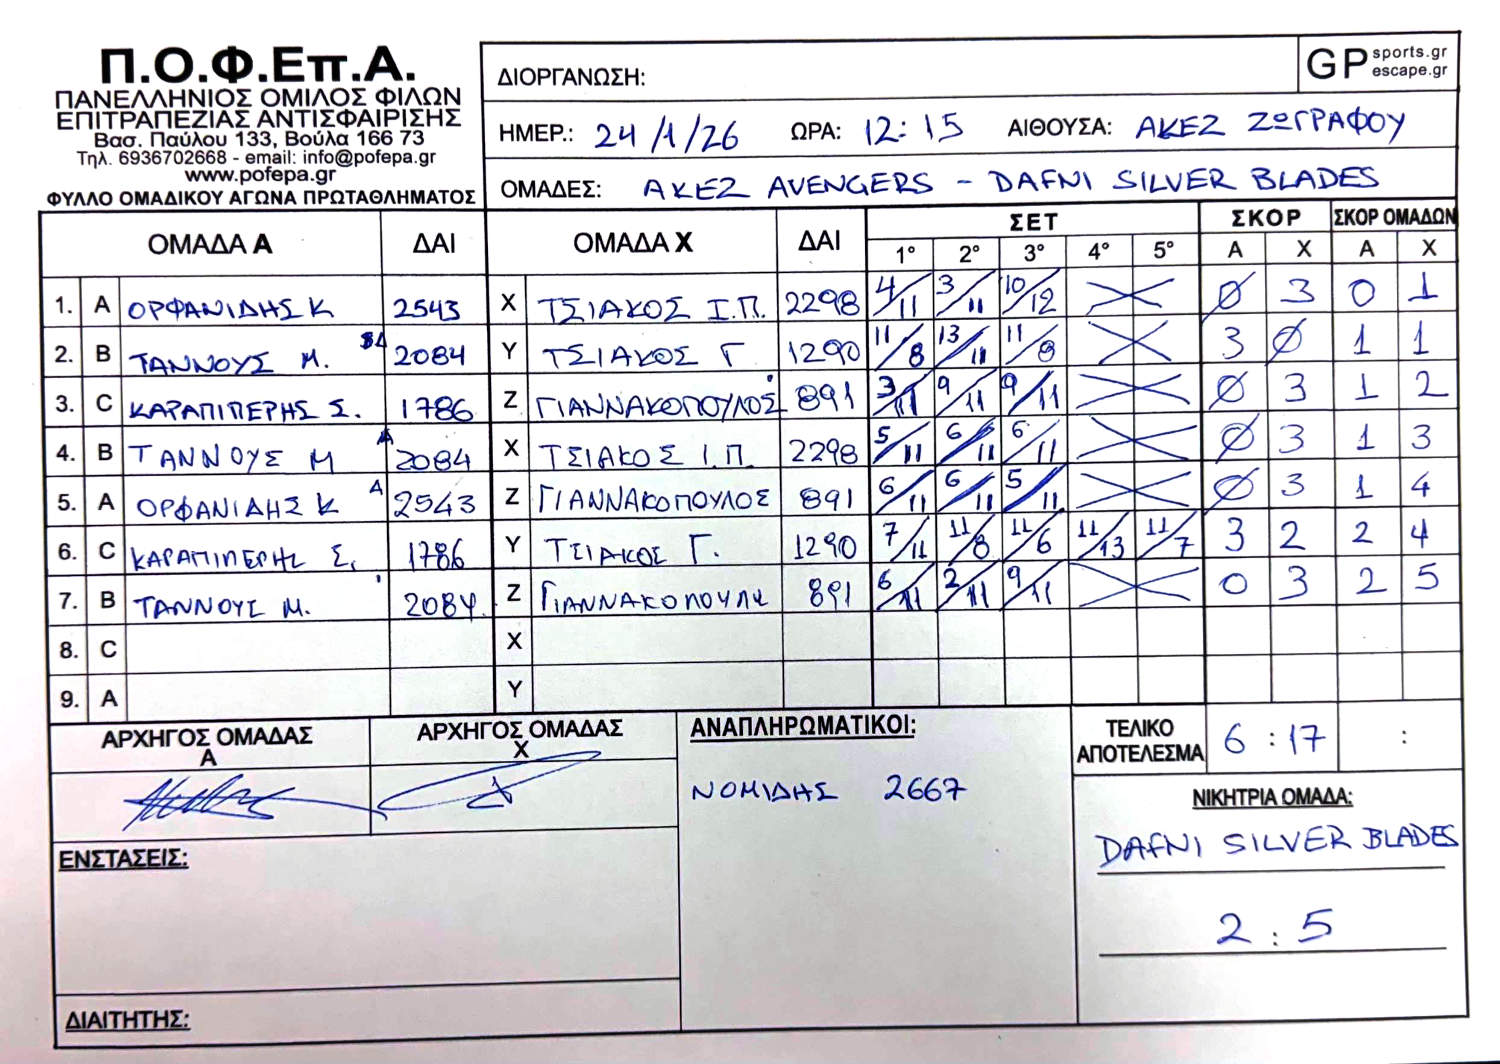 Π.Ο.Φ.Επ.Α.
ΠΑΝΕΛΛΗΝΙΟΣ ΟΜΙΛΟΣ ΦΙΛΩΝ
ΕΠΙΤΡΑΠΕΖΙΑΣ ΑΝΤΙΣΦΑΙΡΙΣΗΣ
Βασ. Παύλου 133, Βούλα 166 73
Τηλ. 6936702668 - email: info@pofepa.gr
www.pofepa.gr
ΦΥΛΛΟ ΟΜΑΔΙΚΟΥ ΑΓΩΝΑ ΠΡΩΤΑΘΛΗΜΑΤΟΣ
ΔΙΟΡΓΑΝΩΣΗ:
GP sports.gr
escape.gr
ΗΜΕΡ.: 24/1/26 ΩΡΑ: 12:15 ΑΙΘΟΥΣΑ: ΑΚΕΖ ΖΩΓΡΑΦΟΥ
ΟΜΑΔΕΣ: ΑΚΕΖ AVENGERS - DAFNI SILVER BLADES
ΟΜΑΔΑ Α ΔΑΙ ΟΜΑΔΑ Χ ΔΑΙ ΣΕΤ ΣΚΟΡ ΣΚΟΡ ΟΜΑΔΩΝ
1° 2° 3° 4° 5° Α Χ Α Χ
1. A ΟΡΦΑΝΙΔΗΣ Κ 2543 X ΤΣΙΑΚΟΣ Ι.Π. 2298 4/11 3/11 10/12 0 3 0 1
2. B ΤΑΝΝΟΥΣ Μ. 2084 Y ΤΣΙΑΚΟΣ Γ 1290 11/8 13/11 11/8 3 0 1 1
3. C ΚΑΡΑΠΙΠΕΡΗΣ Σ. 1786 Z ΓΙΑΝΝΑΚΟΠΟΥΛΟΣ 891 3/11 9/11 9/11 0 3 1 2
4. B ΤΑΝΝΟΥΣ Μ 2084 X ΤΣΙΑΚΟΣ Ι.Π. 2298 5/11 6/11 6/11 0 3 1 3
5. A ΟΡΦΑΝΙΔΗΣ Κ 2543 Z ΓΙΑΝΝΑΚΟΠΟΥΛΟΣ 891 6/11 6/11 5/11 0 3 1 4
6. C ΚΑΡΑΠΙΠΕΡΗΣ Σ. 1786 Y ΤΣΙΑΚΟΣ Γ. 1290 7/11 11/8 11/6 11/13 11/7 3 2 2 4
7. B ΤΑΝΝΟΥΣ Μ. 2084 Z ΓΙΑΝΝΑΚΟΠΟΥΛΟΣ 891 6/11 2/11 9/11 0 3 2 5
8. C X
9. A Y
ΑΡΧΗΓΟΣ ΟΜΑΔΑΣ Α
ΑΡΧΗΓΟΣ ΟΜΑΔΑΣ Χ
ΑΝΑΠΛΗΡΩΜΑΤΙΚΟΙ:
ΝΟΜΙΔΗΣ 2667
ΤΕΛΙΚΟ ΑΠΟΤΕΛΕΣΜΑ 6 : 17 :
ΝΙΚΗΤΡΙΑ ΟΜΑΔΑ:
DAFNI SILVER BLADES
2 : 5
ΕΝΣΤΑΣΕΙΣ:
ΔΙΑΙΤΗΤΗΣ: